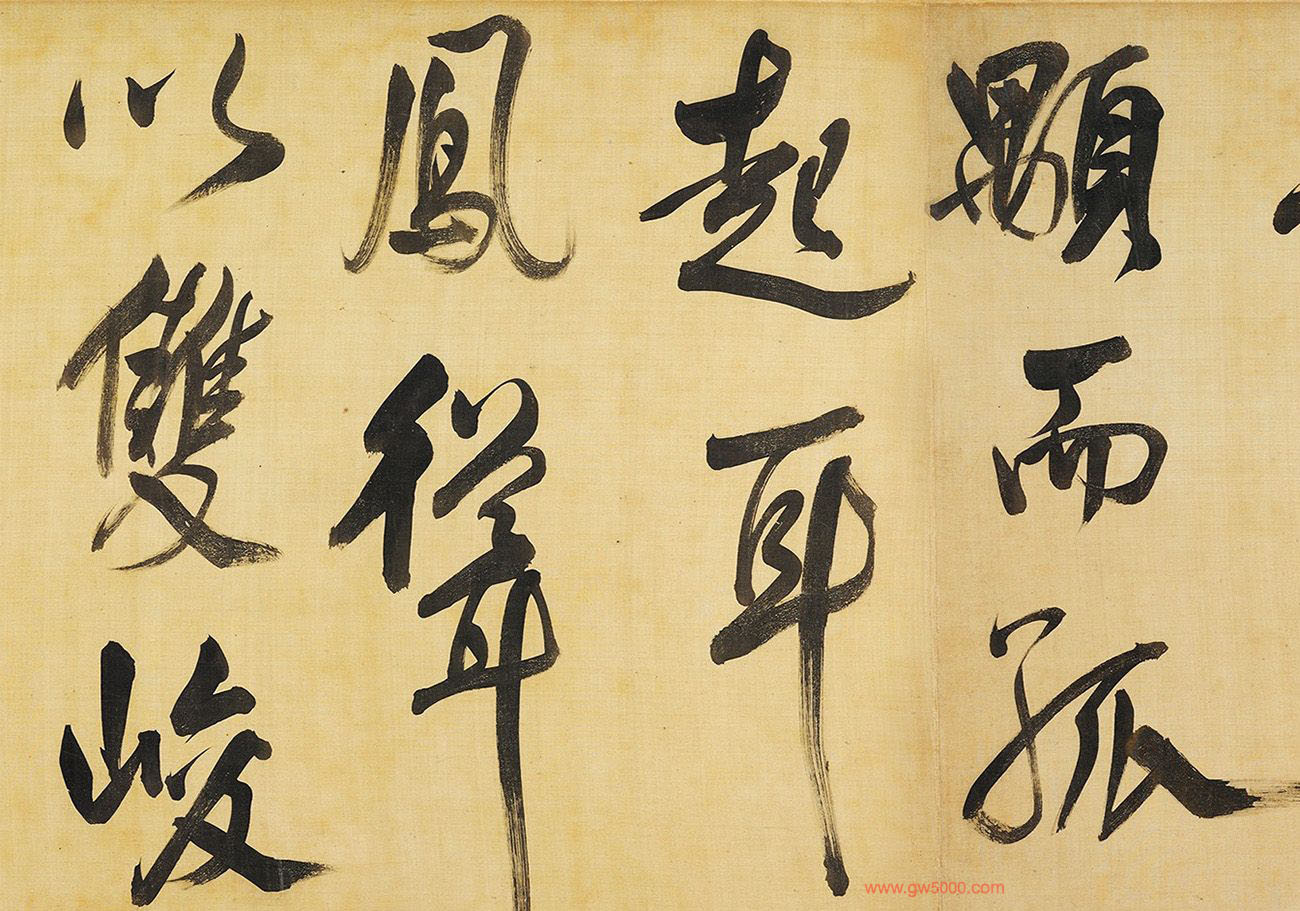 顒而孤
起耳
鳳聳
以雙峻
www.gw5000.com